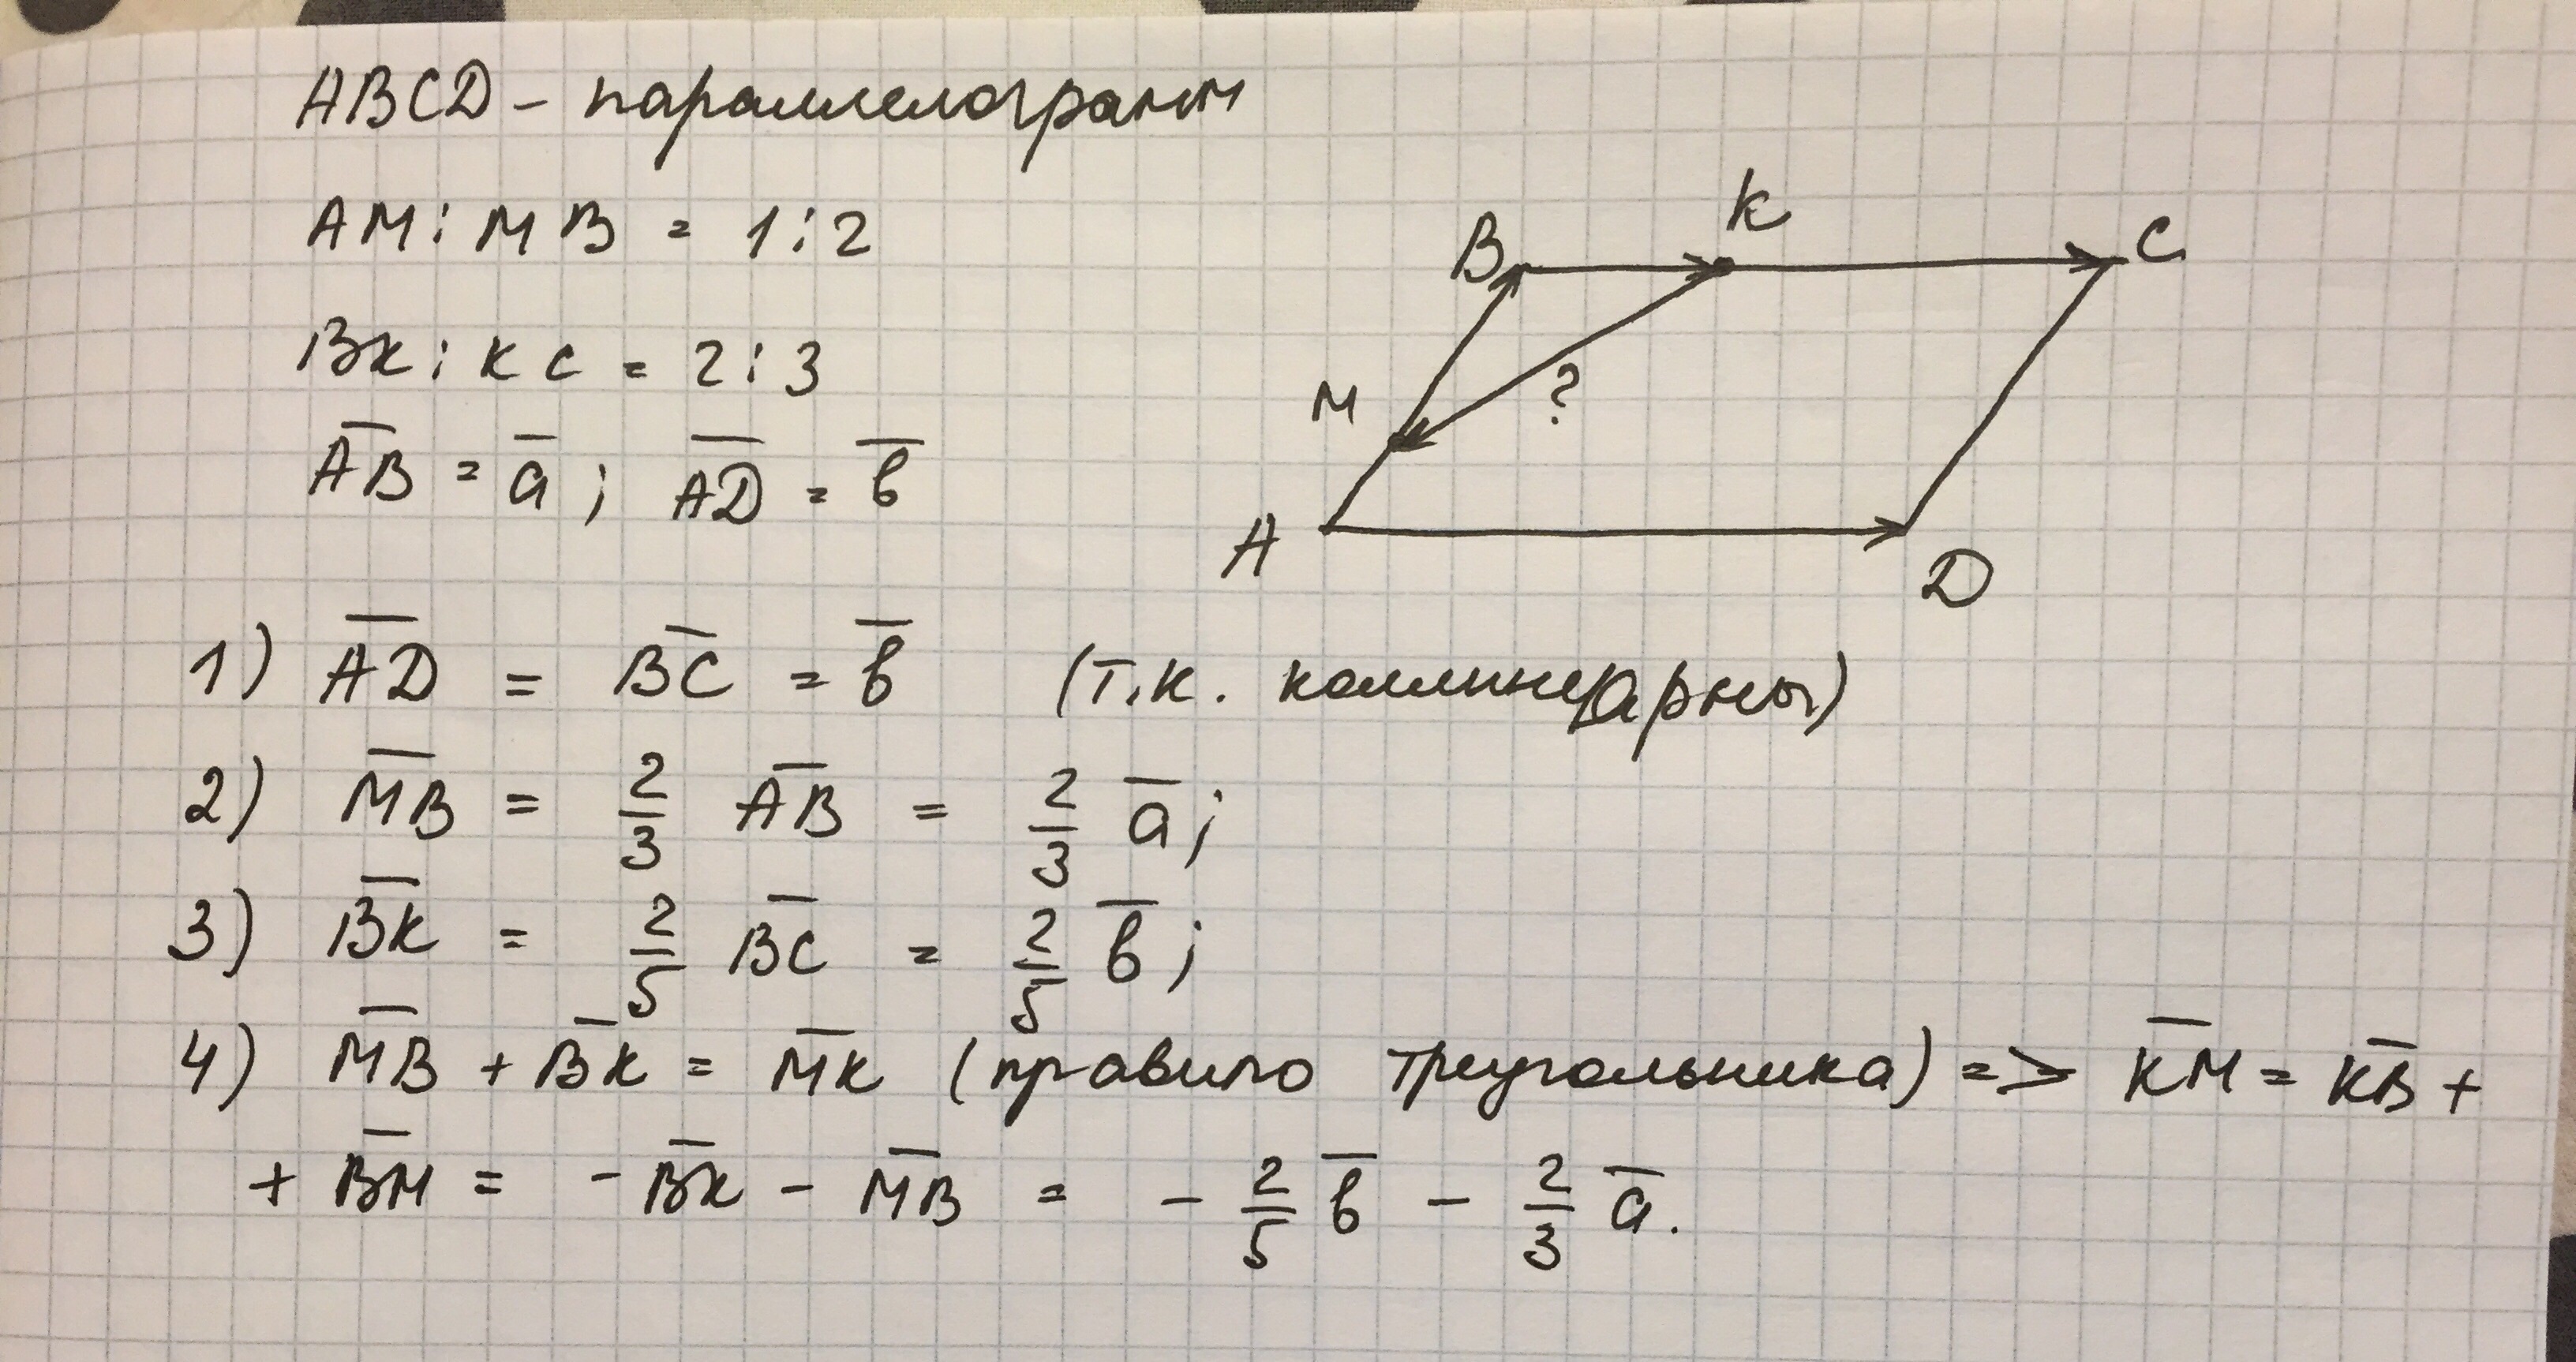 ABCD – параллелограмм
AM : MB = 1 : 2
BK : KC = 2 : 3
A̅B̅ = a̅ ; A̅D̅ = b̅
B K C
M ?
A D
1) A̅D̅ = B̅C̅ = b̅ (т.к. коллинеарны)
2) M̅B̅ = 2/3 A̅B̅ = 2/3 a̅ ;
3) B̅K̅ = 2/5 B̅C̅ = 2/5 b̅ ;
4) M̅B̅ + B̅K̅ = M̅K̅ (правило треугольника) => K̅M̅ = K̅B̅ +
+ B̅M̅ = - B̅K̅ - M̅B̅ = - 2/5 b̅ - 2/3 a̅.